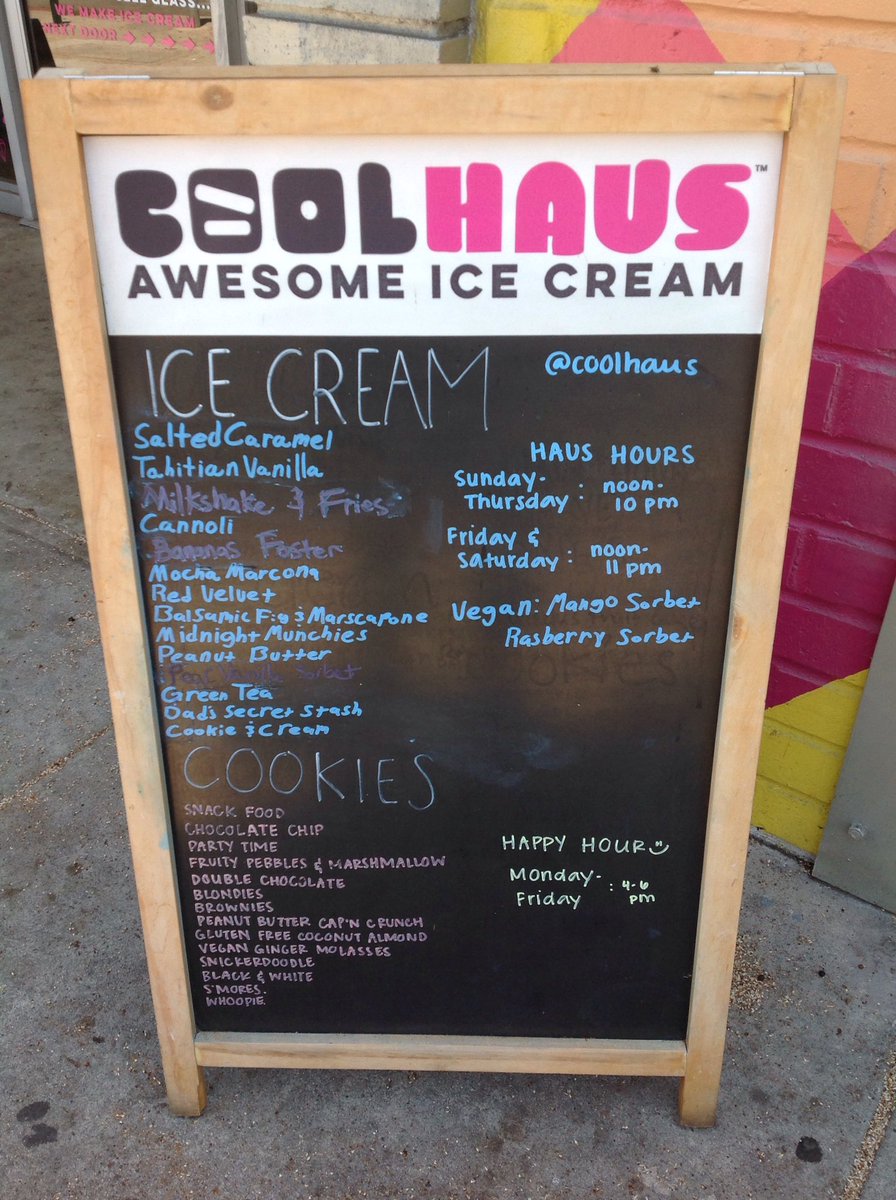 GLASS...
WE MAKE ICE CREAM
NEXT DOOR → → → →
COOLHAUS™
AWESOME ICE CREAM
ICE CREAM
@coolhaus
Salted Caramel
Tahitian Vanilla
Milkshake & Fries
Cannoli
Bananas Foster
Mocha Marcona
Red Velvet
Balsamic Fig & Marscapone
Midnight Munchies
Peanut Butter
Sorbet
Green Tea
Dad's Secret Stash
Cookie & Cream
HAUS HOURS
Sunday-
Thursday : noon-
10 pm
Friday &
Saturday : noon-
11 pm
Vegan: Mango Sorbet
Rasberry Sorbet
COOKIES
SNACK FOOD
CHOCOLATE CHIP
PARTY TIME
FRUITY PEBBLES & MARSHMALLOW
DOUBLE CHOCOLATE
BLONDIES
BROWNIES
PEANUT BUTTER CAP'N CRUNCH
GLUTEN FREE COCONUT ALMOND
VEGAN GINGER MOLASSES
SNICKERDOODLE
BLACK & WHITE
S'MORES.
WHOOPIE.
HAPPY HOUR
Monday-
Friday : 4-6
pm